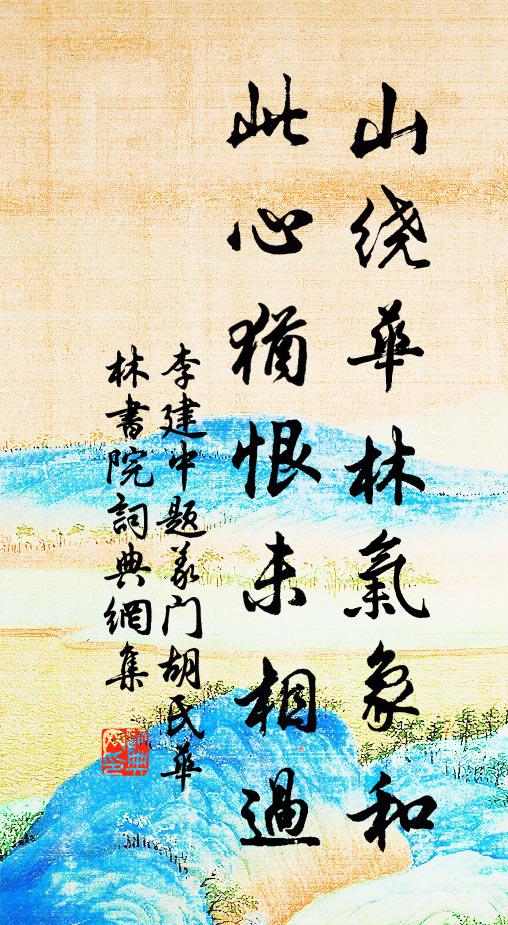 山绕華林氣象和
此心猶恨未相過
李建中题义门胡氏華
林書院詞典網集